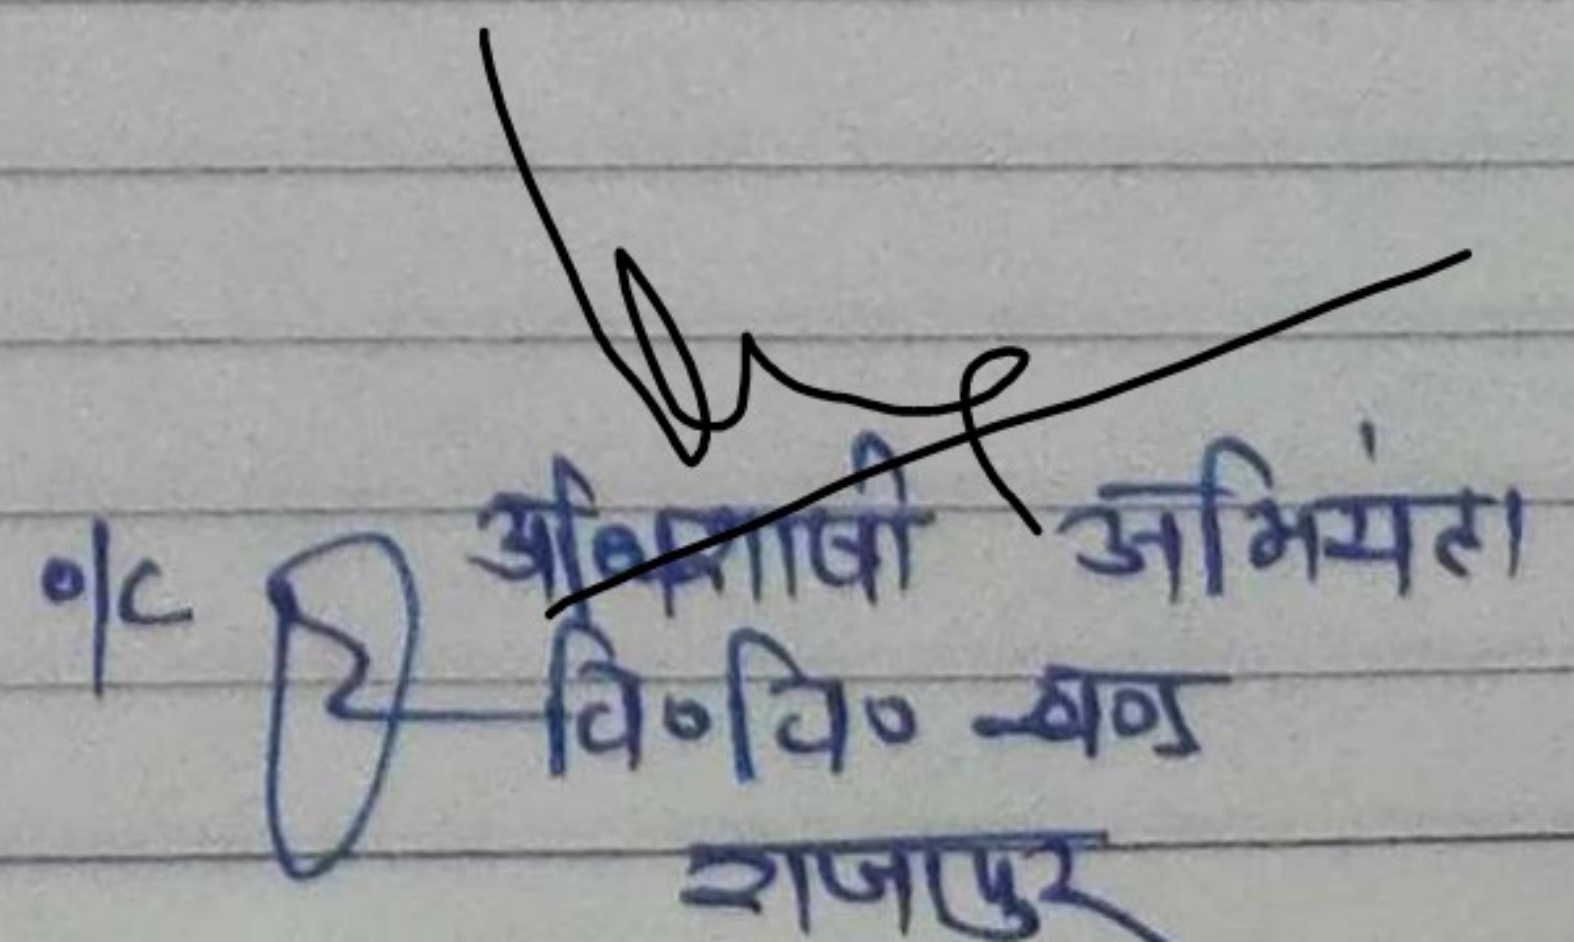 अधिशाषी अभियंता
o/c वि०वि० खण्ड
राजापुर